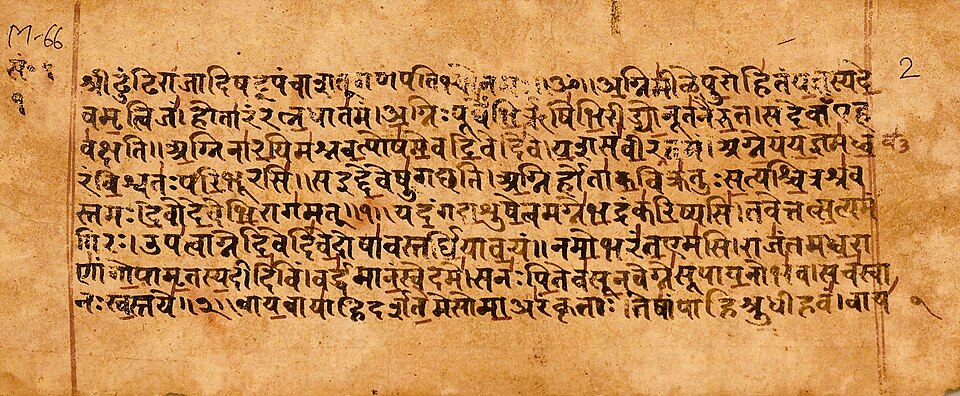 M-66
2
१
श्रीढुंढिराजादिषट्पंचाशत् गणपतिभ्यो ॥ॐ॥अग्निमीळेपुरोहितंयज्ञस्यदे
वमृत्विजं।होतारंरत्नधातमं।अग्निःपूर्वेभिर्ऋषिभिरीड्योनूतनैरुत।सदेवाँएह
वक्षति॥अग्निनारयिमश्नवत्पोषमेवदिवेदिवे।यशसंवीरवत्तमं।अग्नेयंयज्ञमध्व
रंविश्वतःपरिभूरसि॥सइद्देवेषुगछति।अग्निर्होताकविक्रतुःसत्यश्चित्रश्रव
स्तमः।देवोदेवेभिरागमत्॥१॥यदंगदाशुषेत्वमग्नेभद्रंकरिष्यसि।तवेत्तत्सत्यमं
गिरः।उपत्वाग्नेदिवेदिवेदोषावस्तर्द्धियावयं॥नमोभरंतएमसि।राजंतमध्वरा
णांगोपामृतस्यदीदिविं।वर्द्धमानंस्वेदमे।सनःपितेवसूनवेग्नेसूपायनोभव।सचस्वा
नःस्वस्तये॥२॥वायवायाहिदर्शतेमेसोमाअरंकृताः।तेषांपाहिश्रुधीहवं।वाय